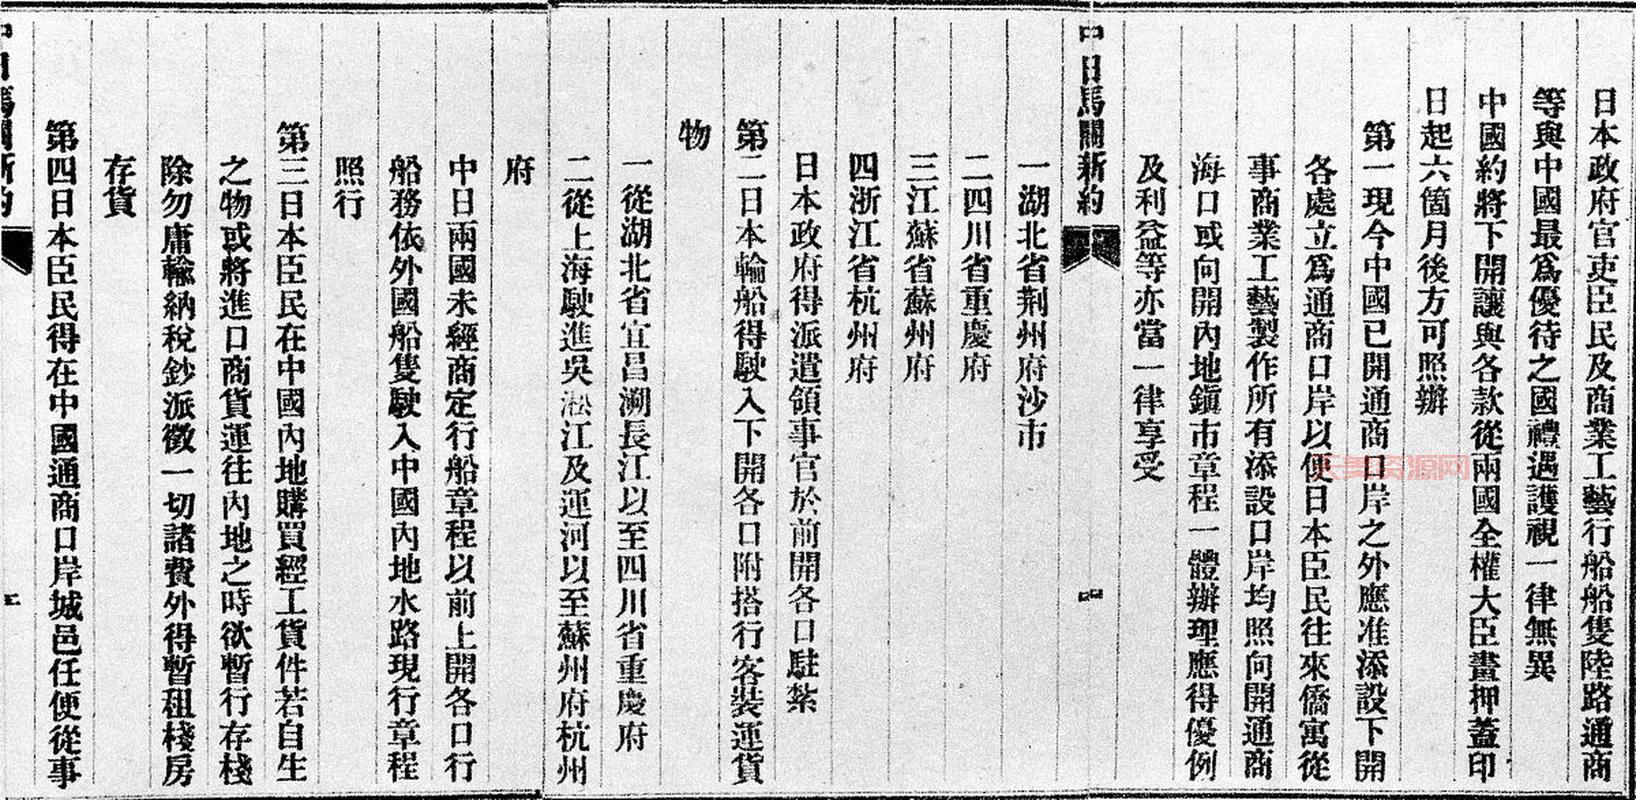 日本政府官吏臣民及商業工藝行船船隻陸路通商
等與中國最爲優待之國禮遇護視一律無異
中國約將下開讓與各款從兩國全權大臣畫押蓋印
日起六箇月後方可照辦
第一現今中國已開通商口岸之外應准添設下開
各處立爲通商口岸以便日本臣民往來僑寓從
事商業工藝製作所有添設口岸均照向開通商
海口或向開內地鎭市章程一體辦理應得優例
及利益等亦當一律享受
中日馬關新約
一湖北省荆州府沙市
二四川省重慶府
三江蘇省蘇州府
四浙江省杭州府
日本政府得派遣領事官於前開各口駐紮
第二日本輪船得駛入下開各口附搭行客裝運貨
物
一從湖北省宜昌溯長江以至四川省重慶府
二從上海駛進吳淞江及運河以至蘇州府杭州
府
中日兩國未經商定行船章程以前上開各口行
船務依外國船隻駛入中國內地水路現行章程
照行
第三日本臣民在中國內地購買經工貨件若自生
之物或將進口商貨運往內地之時欲暫行存棧
除勿庸輸納稅鈔派徵一切諸費外得暫租棧房
存貨
第四日本臣民得在中國通商口岸城邑任便從事
中日馬關新約
天美资源网